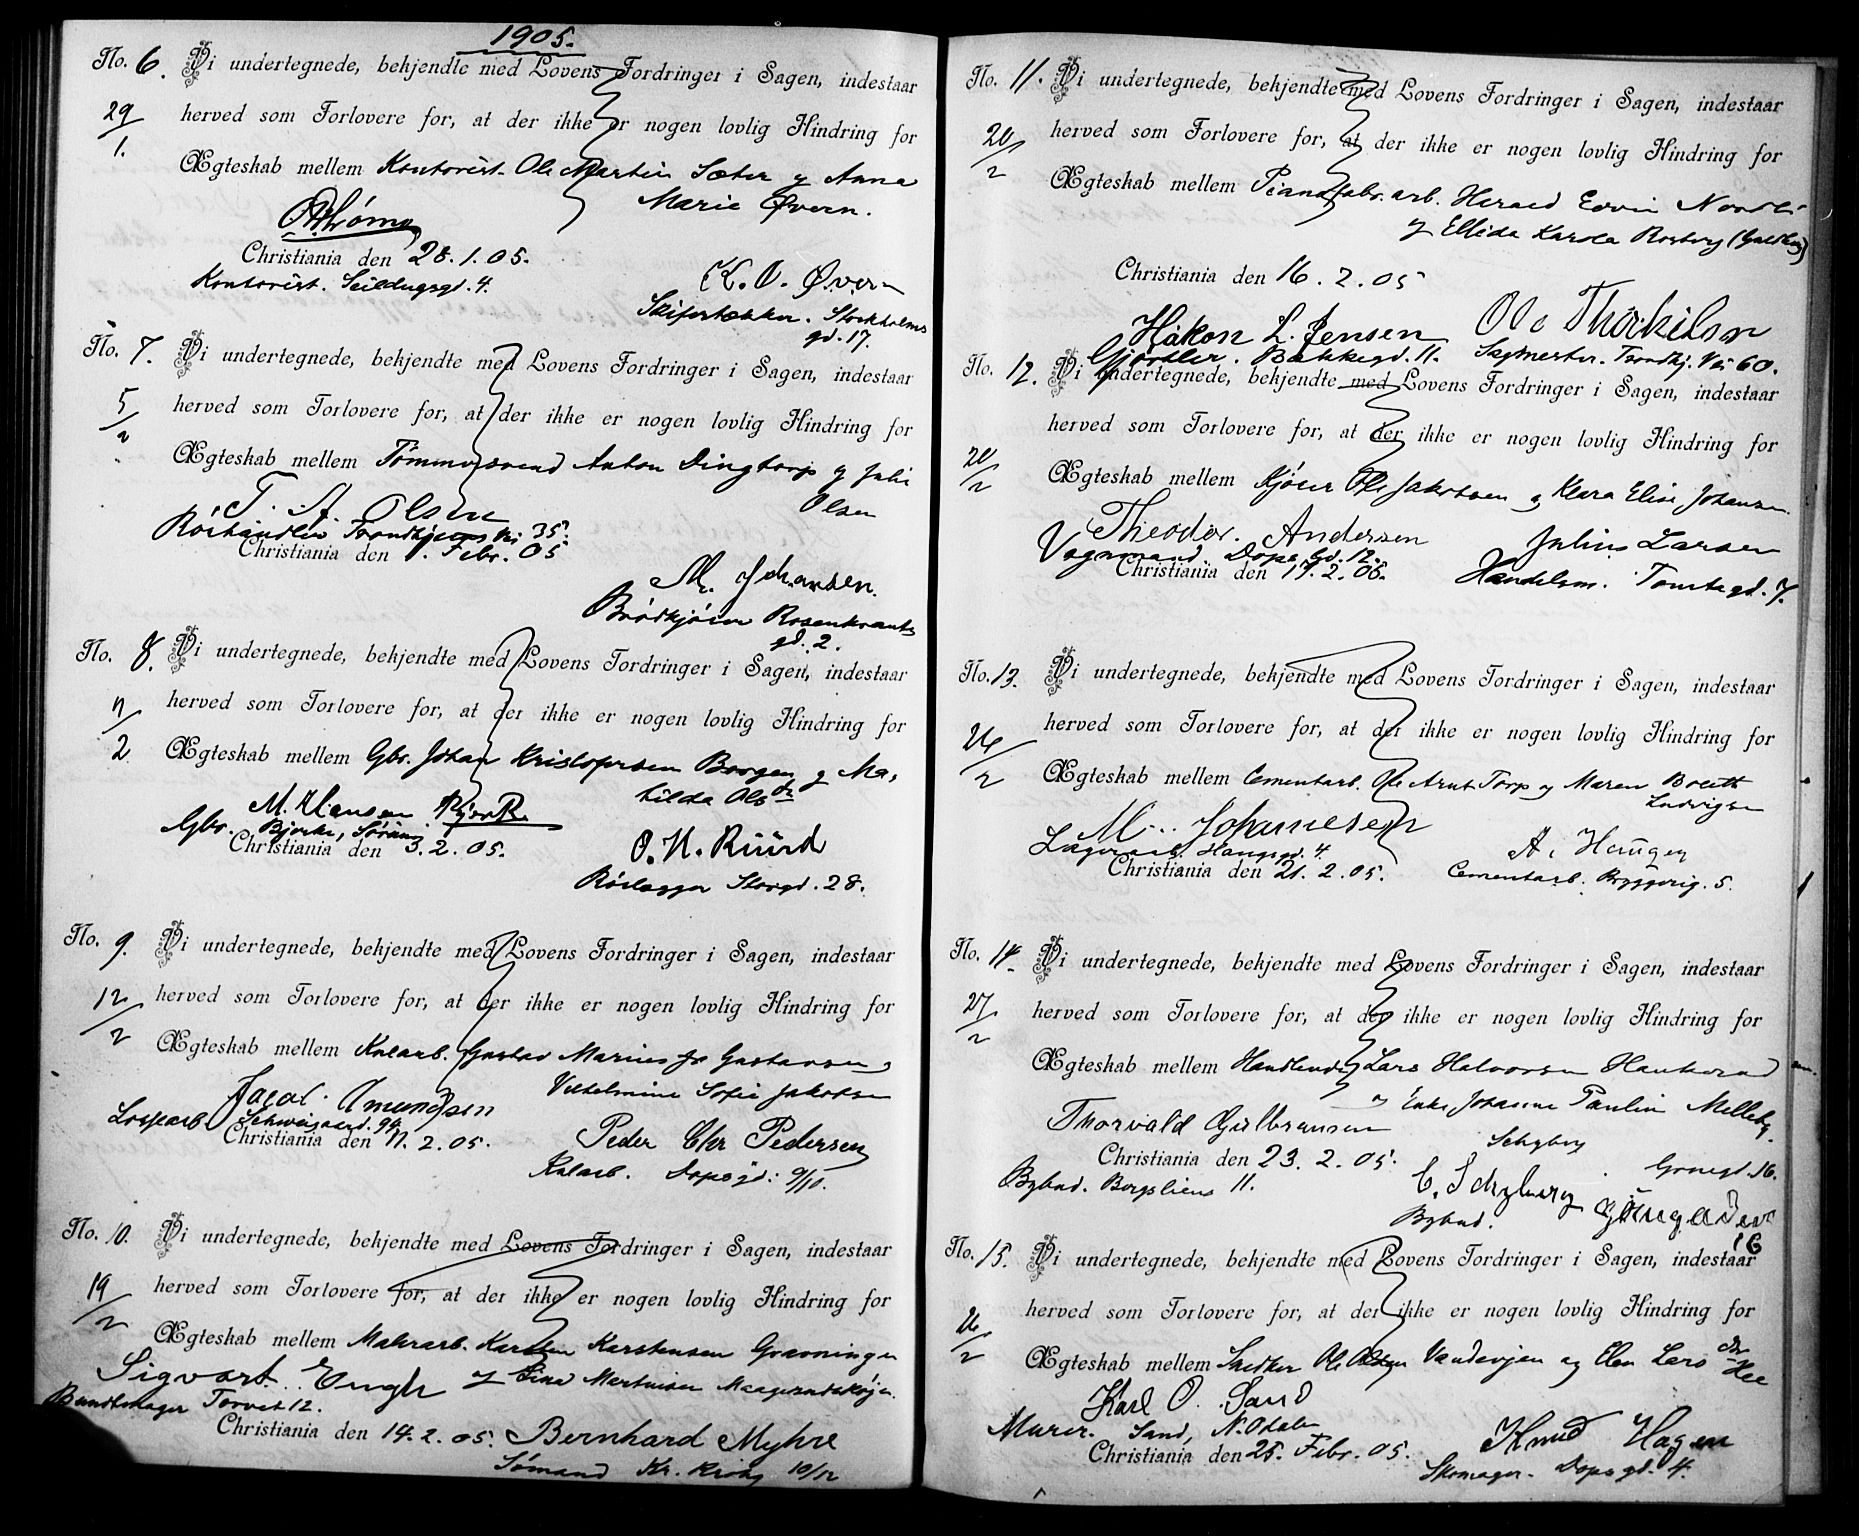 1905.
No. 6. Vi undertegnede, bekjendte med Lovens Fordringer i Sagen, indestaar
29/1. herved som Forlovere for, at der ikke er nogen lovlig Hindring for
Ægteskab mellem Kontorist Ole Martin Sæter og Anna
Marie Øvern.
Christiania den 28.1.05.
Kontorist. Seildugsgd. 4.
K. O. Øvern
Skifertækker. Stockholms
gd. 17.
No. 7. Vi undertegnede, bekjendte med Lovens Fordringer i Sagen, indestaar
5/2 herved som Forlovere for, at der ikke er nogen lovlig Hindring for
Ægteskab mellem Tømmersvend Anton Dingtorp og Julie
Olsen
T. A. Olsen
Trondhjems Vei 35.
Christiania den 1. Febr. 05
M. Johansen.
Brødkjører Rosenkrantz
gd. 2.
No. 8. Vi undertegnede, bekjendte med Lovens Fordringer i Sagen, indestaar
herved som Forlovere for, at der ikke er nogen lovlig Hindring for
2 Ægteskab mellem Gbr. Johan Kristofersen Borgen og Ma-
tilda Olsdtr
M. Hansen Kjørk
Gbr. Bjerke, Sørum
Christiania den 3.2.05.
O. N. Ruud
Rørlægger Storgd. 28.
No. 9. Vi undertegnede, bekjendte med Lovens Fordringer i Sagen, indestaar
12/2 herved som Forlovere for, at der ikke er nogen lovlig Hindring for
Ægteskab mellem Kularb. Gustav Marius Gustavsen og
Vilhelmine Sofie Jakobsen
Jacob Amundsen
Lossearb. Schweigaardsgd.
Christiania den 11.2.05.
Peder Chr Pedersen
Kularb. Dopsgd. 9/10.
No. 10. Vi undertegnede, bekjendte med Lovens Fordringer i Sagen, indestaar
19/2 herved som Forlovere for, at der ikke er nogen lovlig Hindring for
Ægteskab mellem Malerarb. Karsten Karstensen Grønningen
Sigvart Engh og Lina Martinsen
Buntmager Torvet 12.
Christiania den 14.2.05.
Bernhard Myhre
Sømand Kr. Krohg 10/12
No. 11. Vi undertegnede, bekjendte med Lovens Fordringer i Sagen, indestaar
20/2 herved som Forlovere for, at der ikke er nogen lovlig Hindring for
Ægteskab mellem Pianofabr. arb. Herald Edvin Nordli
og Ellida Karola Rosberg
Christiania den 16.2.05
Håkon L. Jensen
Ole Thorkilsen
Gjørtler. Bakkegd. 11. Sagmester. Trondhj. Vei 60.
No. 12. Vi undertegnede, bekjendte med Lovens Fordringer i Sagen, indestaar
herved som Forlovere for, at der ikke er nogen lovlig Hindring for
20/2 Ægteskab mellem Kjører Ole Jakobsen og Klara Elise Johansen
Theodor Andersen
Julius Larsen
Vognmand Dops Gd. 12.
Christiania den 17.2.05. Handelsm. Tomtegd. 7.
No. 13. Vi undertegnede, bekjendte med Lovens Fordringer i Sagen, indestaar
26/2 herved som Forlovere for, at der ikke er nogen lovlig Hindring for
Ægteskab mellem Cementarb. Ole Arnt Torp og Maren Boletth
Ludvigsen
M. Johannesen
Lagerarb. Haugsgd. 4.
A. Haugen
Christiania den 21.2.05. Cementarb. Bryggerig. 5.
No. 14. Vi undertegnede, bekjendte med Lovens Fordringer i Sagen, indestaar
27/2 herved som Forlovere for, at der ikke er nogen lovlig Hindring for
Ægteskab mellem Handlende Lars Halvorsen Haukerud
og Enke Johanne Paulin Melleby
Schyberg
Thorvald Gulbransen
Christiania den 23.2.05.
Bybud. Bergsliens 11.
C. Schyberg
Bybud.
16
No. 15. Vi undertegnede, bekjendte med Lovens Fordringer i Sagen, indestaar
26/2 herved som Forlovere for, at der ikke er nogen lovlig Hindring for
Ægteskab mellem Snedker Ole Olsen og Elen Lars dtr
Karl O. Sand
Murer. Sand, N. Odalen
Christiania den 25. Febr. 05.
Knud Hagen
Skomager. Dopsgd. 4.